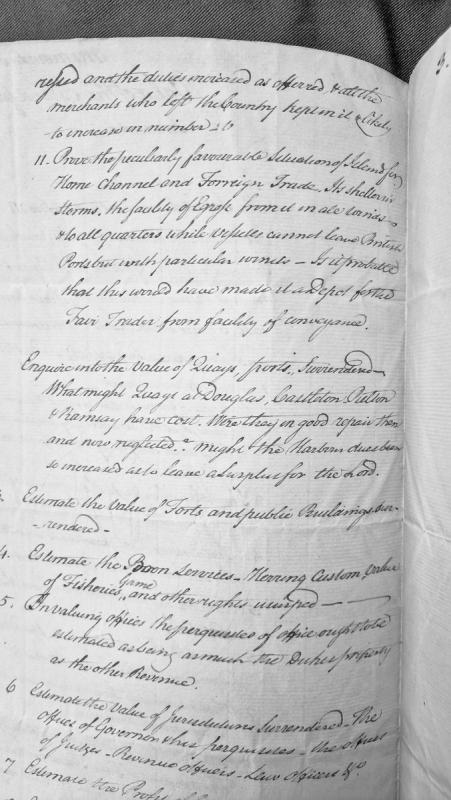 ressed and the duties increased as offerred & all the
merchants who left the Country kept in it & likely
to increase in number
11. Prove the peculiarly favourable Situation of Island for
Home Channel and Forreign Trade. Its shelter in
Storms, the facility of Egress from it in all winds
& to all quarters while vessells cannot leave British
Ports but with particular winds – Is it probable
that this would have made it a Depot for the
Fair Trader from facility of conveyance.
Enquire into the value of Quays, ports, Surrendered –
What might Quays at Douglas, Castleton
& Ramsay have cost. Were they in good repair then
and now neglected. might the Harbour dues been
so increased as to leave a Surplus for the Lord.
Estimate the value of Forts and public Buildings Sur-
-rendered –
4. Estimate the Boon Services – Herring Custom & value
of Fisheries, Game and other rights usurped –
5. In valuing offices the perquisites of office ought to be
estimated as being as much the Dukes property
as the other Revenue.
6 Estimate the value of Jurisdictions Surrendered – The
offices of Governor & his perquisites – the offices
of Judges – Revenue officers – Law officers &c.
7 Estimate the